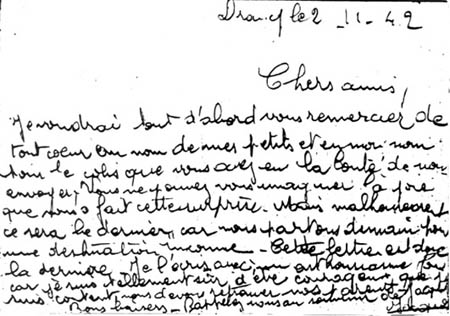 Drancy le 2 - 11 - 42
Chers amis,
Je voudrai tout d'abord vous remercier de
tout coeur au nom de mes petits et en mon nom
le colis que vous avez eu la bonté de nous
envoyer, Vous ne pouvez vous imaginer la joie
que nous a fait cette surprise. Mais malheureusement
ce sera le dernier, car nous partons demain pour
une destination inconnue - Cette lettre est donc
la dernière. Je l'écris avec
car je suis tellement sûr d'être courageux que je
suis content nous devons retrouver nos parents
Bons baisers - Rappelez nous au